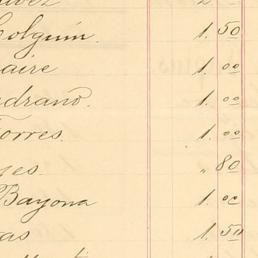 olguin. 1.50
aire 1.00
drano. 1.00
Torres. 1.00
es " 80
Bayona 1.00
as 1.50